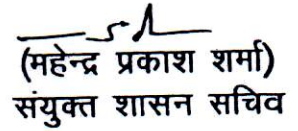 (महेन्द्र प्रकाश शर्मा)
संयुक्त शासन सचिव